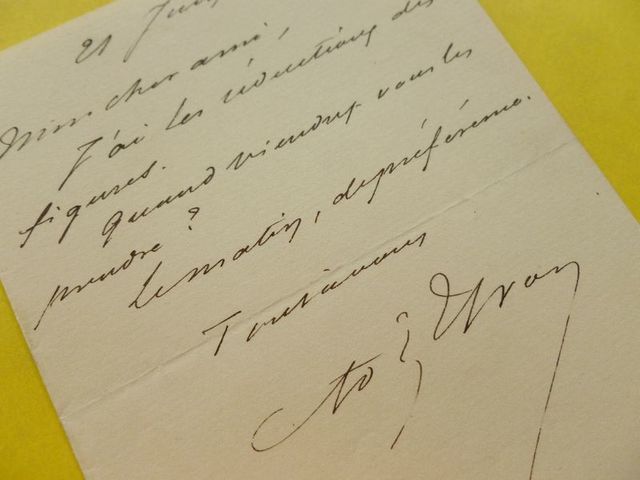 21 Juin
Mon cher ami,
J'ai les réductions des
figures.
Quand viendrez vous les
prendre ?
Le matin, de préférence.
Tout à vous
Ad Yvon